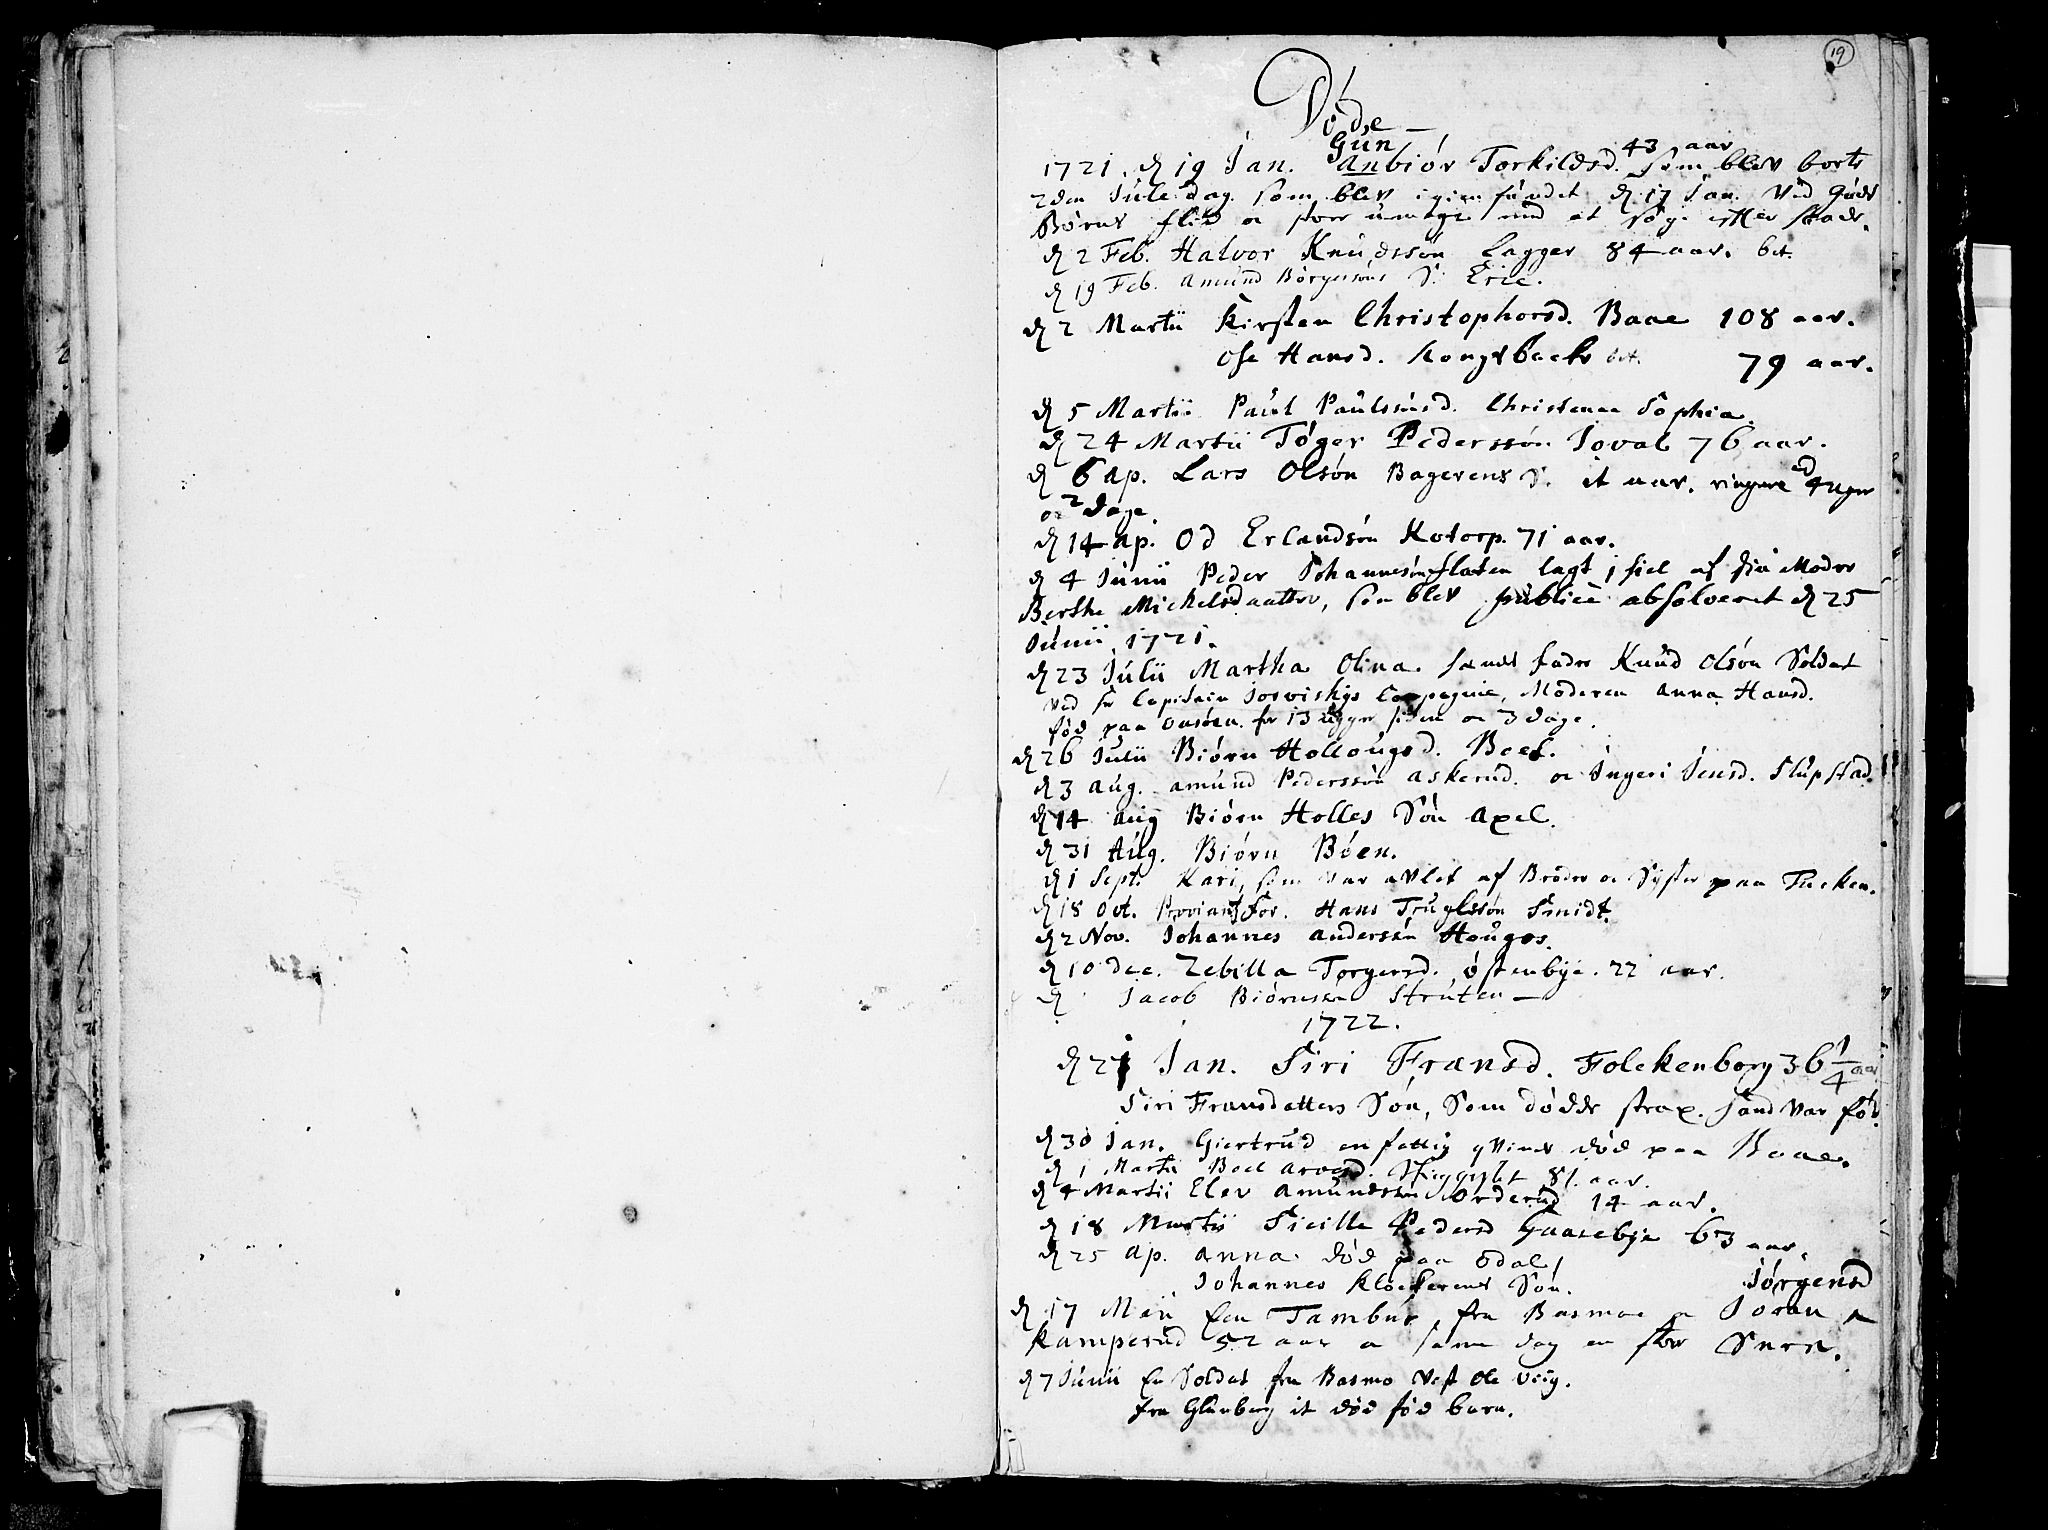 19
Döde
Gun 43 aar
1721. d 19 Jan. Anbiör Torkildsd. som blev borte
2den Jule dag som blev igien fundet d 17 Jan. ved Guds
Börns flid oc stor umage med at söge efter hende.
d 2 Feb. Halvor Knudssön Lagger 84 aar. bet.
d 19 Feb. Amund Börgersöns S. Eric.
d 2 Martii Kirsten Christophersd. Baae 108 aar.
Ose Hansd. Kongsbacke bet. 79 aar.
d 5 Martii Paul Paulssösd. Christenne Sophia.
d 24 Martii Töger Pederssön Joval 76 aar.
d 6 Ap. Lars Olsön Bagerens S. it aar. ringere end 4 Uger
oc 2 Dage
d 14 Ap. Od Erlandsön Kotorp. 71 aar.
d 4 Junii Peder Johannesön flaten lagt i hiel af sin Moder
Berthe Michelsdaatter, som blev publicè absolveret d 25
Junii 1721.
d 23 Julii Martha Olina. hendes fader Knud Olsön Soldat
ved hr Capitain Compagnie, Moderen Anna Hansd.
föd paa for 13 uger siden oc 3 dage.
d 26 Julii Biörn Hollougsd. Boel.
d 3 Aug. Amund Pederssön Askerud. oc Ingeri Jensd. Slupstad.
d 14 Aug Biörn Holles Sön Axel.
d 31 Aug. Biörn Böen.
d 1 Sept. Kari, som var avlet af Broder oc Syster paa Tucken.
d 18 Oct. Proviantfor. Hans Truglssön Smidt.
d 2 Nov. Johannes Andersön Hougos.
d 10 Dec. Zebilla Torgersd. östenbye. 22 aar.
d Jacob Biörnsen Struten —
1722.
d 21 Jan. Siri Fransd. Folckenborg 36 1/4 aar
Siri Fransdatters Sön, Som döde strax. hand var föd.
d 30 Jan. Giertrud en fattig qvinde död paa Baae.
d 1 Martii Boel 81. aar.
d 4 Martii Elev Amundssön Orderud 14 aar.
d 18 Martii Sicille Pedersd Gaasebye 63 aar.
d 25 Ap. Anna. död paa Odal,
Johannes Klockerens Sön. Jörgensd
d 17 Maii Een Tambur, fra Basmoe oc Joran ^
Kamperud 52 aar oc samme dag en stor
d 7 Junii En Soldat fra Basmo vest Ole Viig.
fra Glenborg it död föd barn.